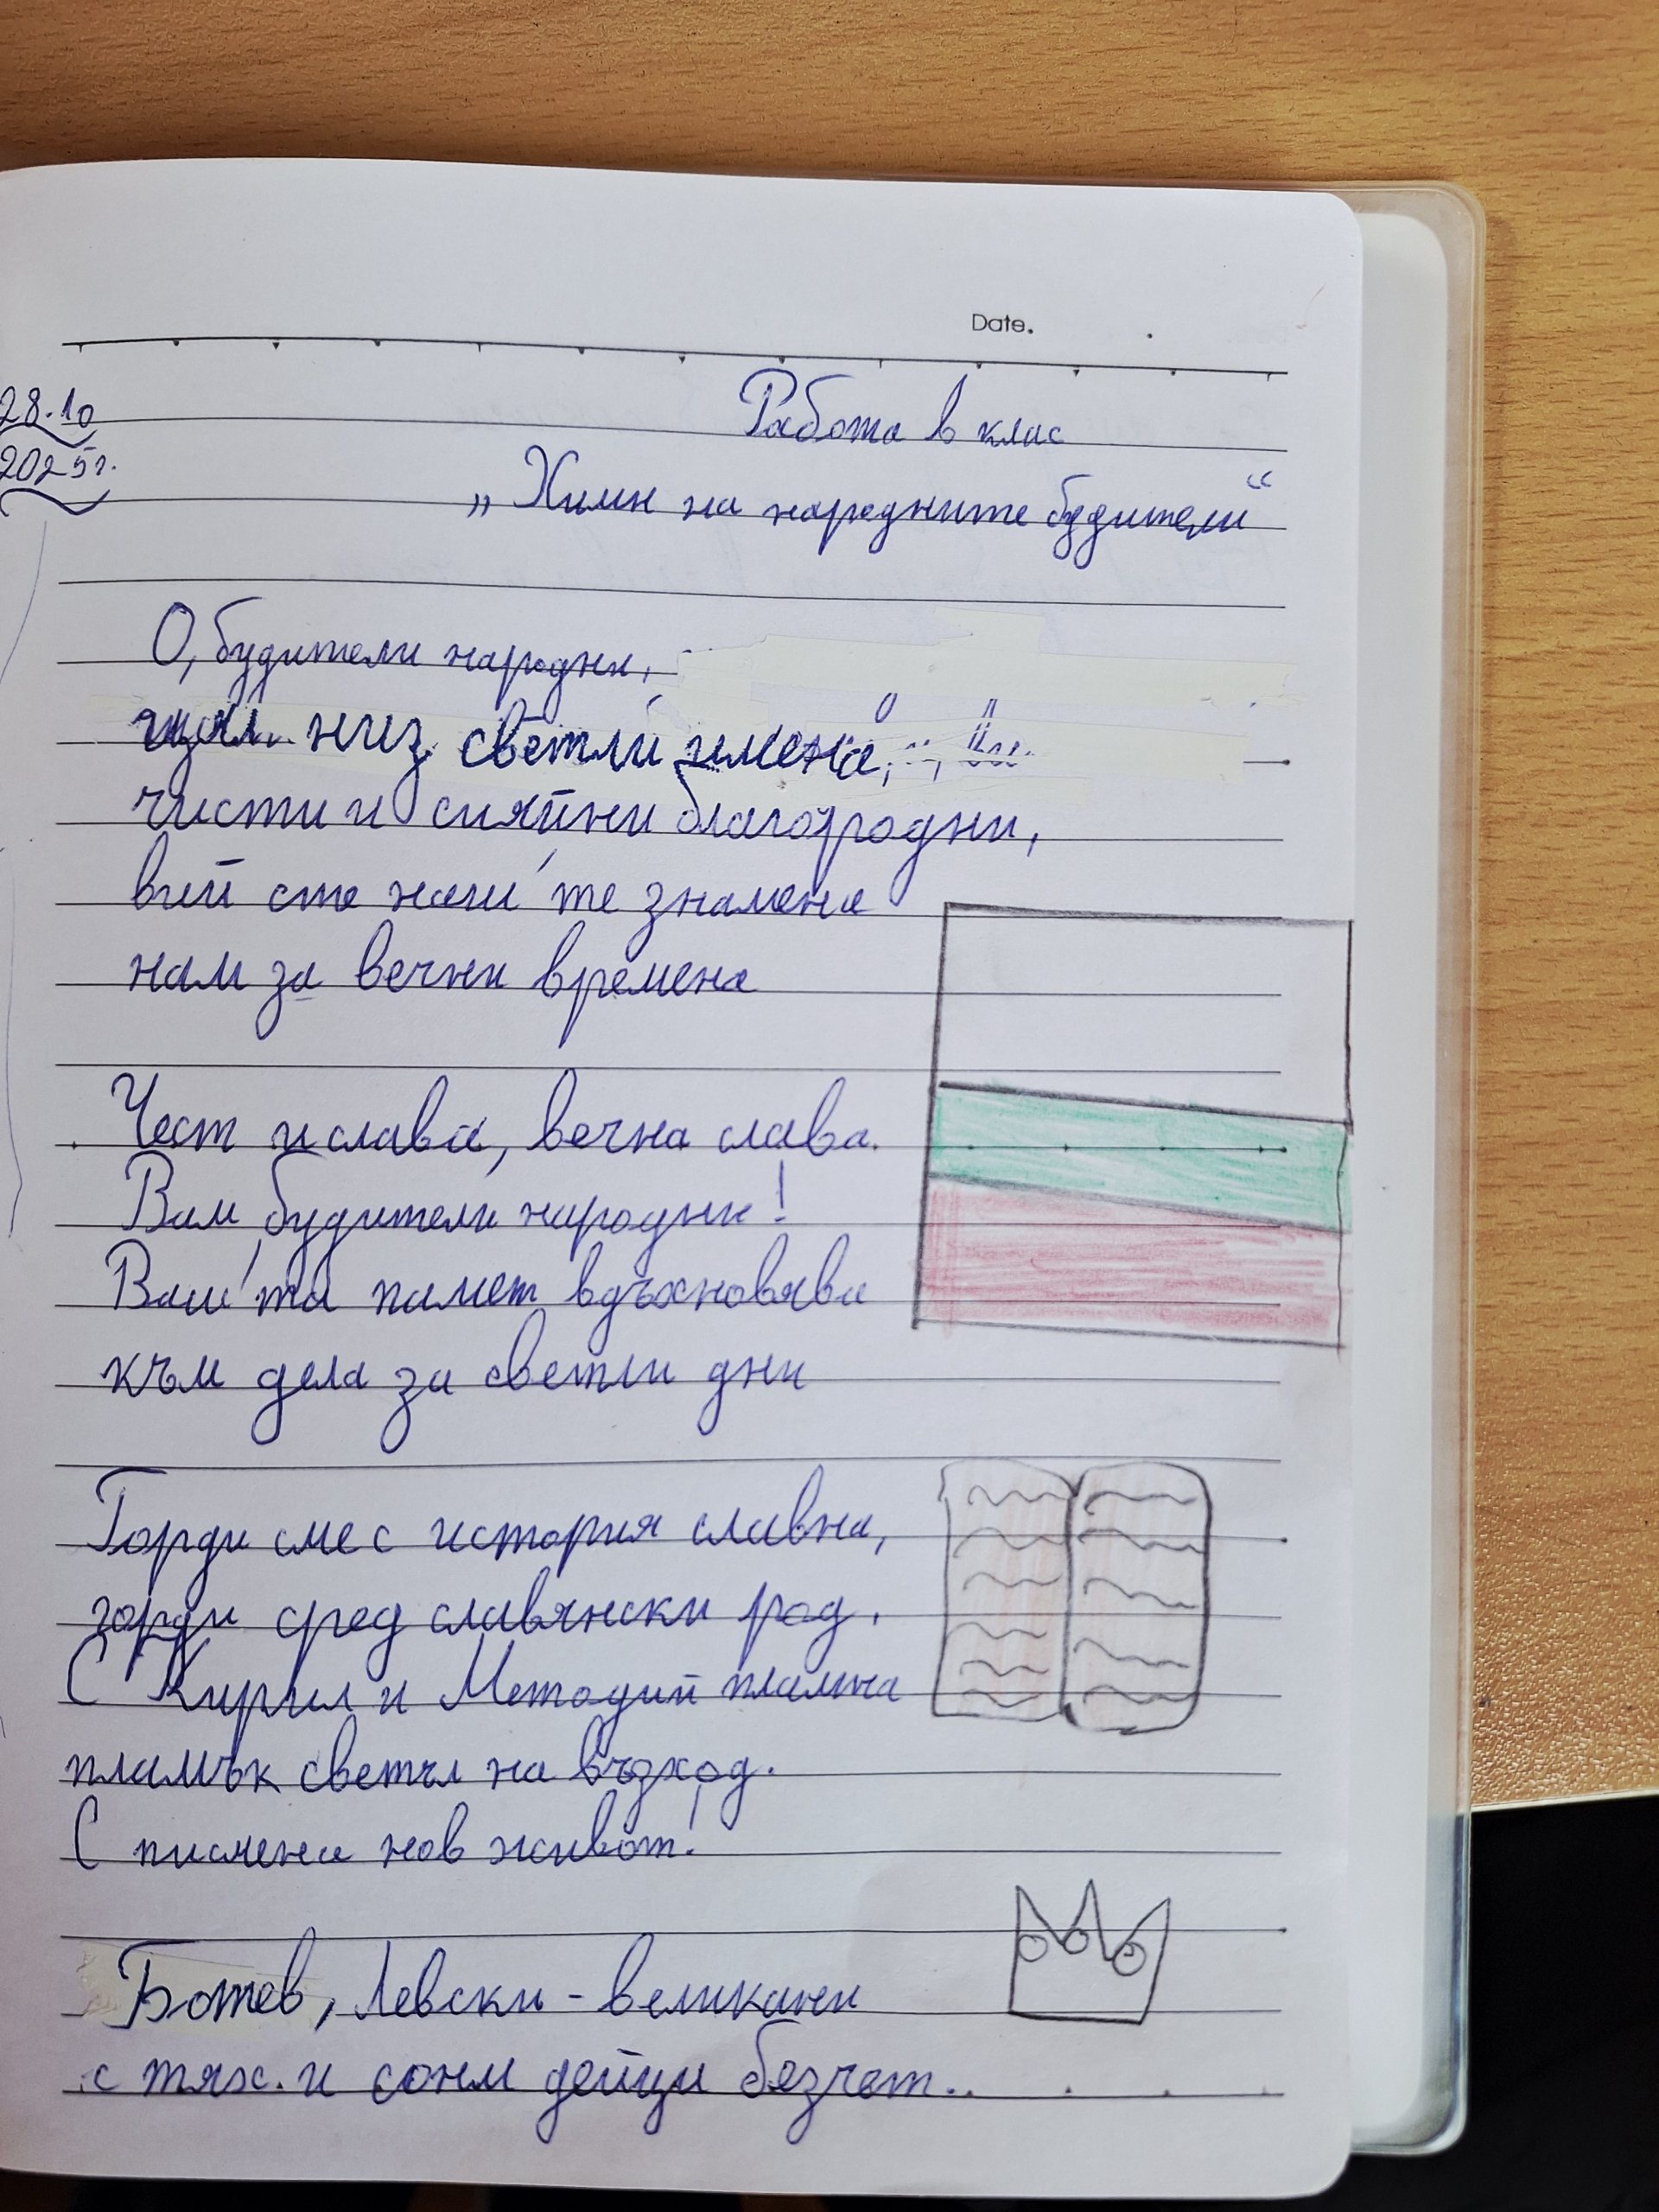 Date.
28.10
2025г.
Работа в клас
„Химн на народните будители“
О, будители народни,
цял низ светли имена,
чисти и сияйни благородни,
вий сте наш'те знамена
нам за вечни времена
Чест и слава, вечна слава.
Вам будители народни!
Ваш'та памет вдъхновява
към дела за светли дни
Горди сме с история славна,
горди сред славянски род.
С Кирил и Методий пламна
пламък светъл на възход.
С писмена нов живот!
Ботев, Левски - великани
с тях. и сонм дейци безчет..